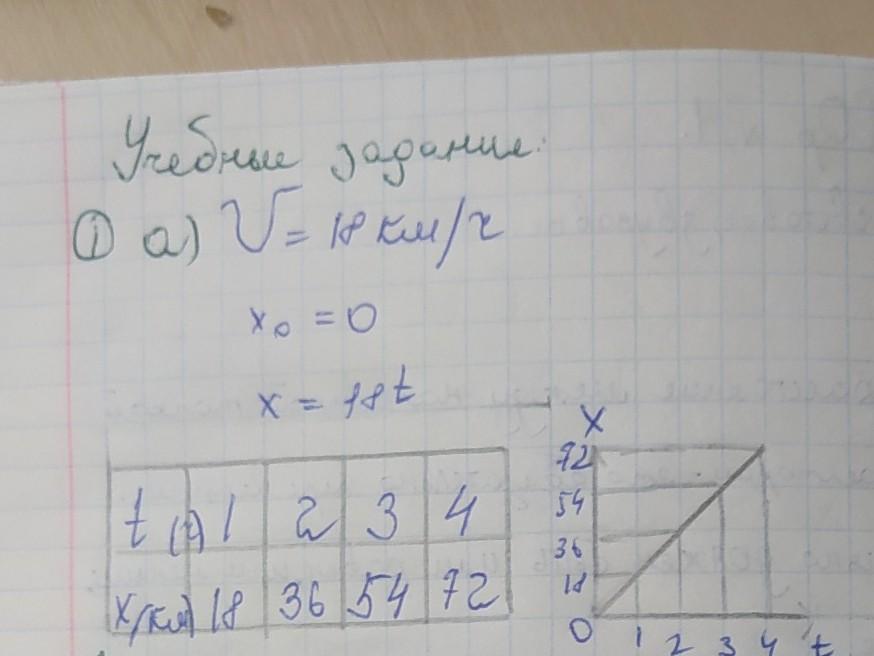 Учебные задание:
① а) V = 18 км/ч
x₀ = 0
x = 18t
t (ч) 1 2 3 4
x(км) 18 36 54 72
X
72
54
36
18
0 1 2 3 4 t